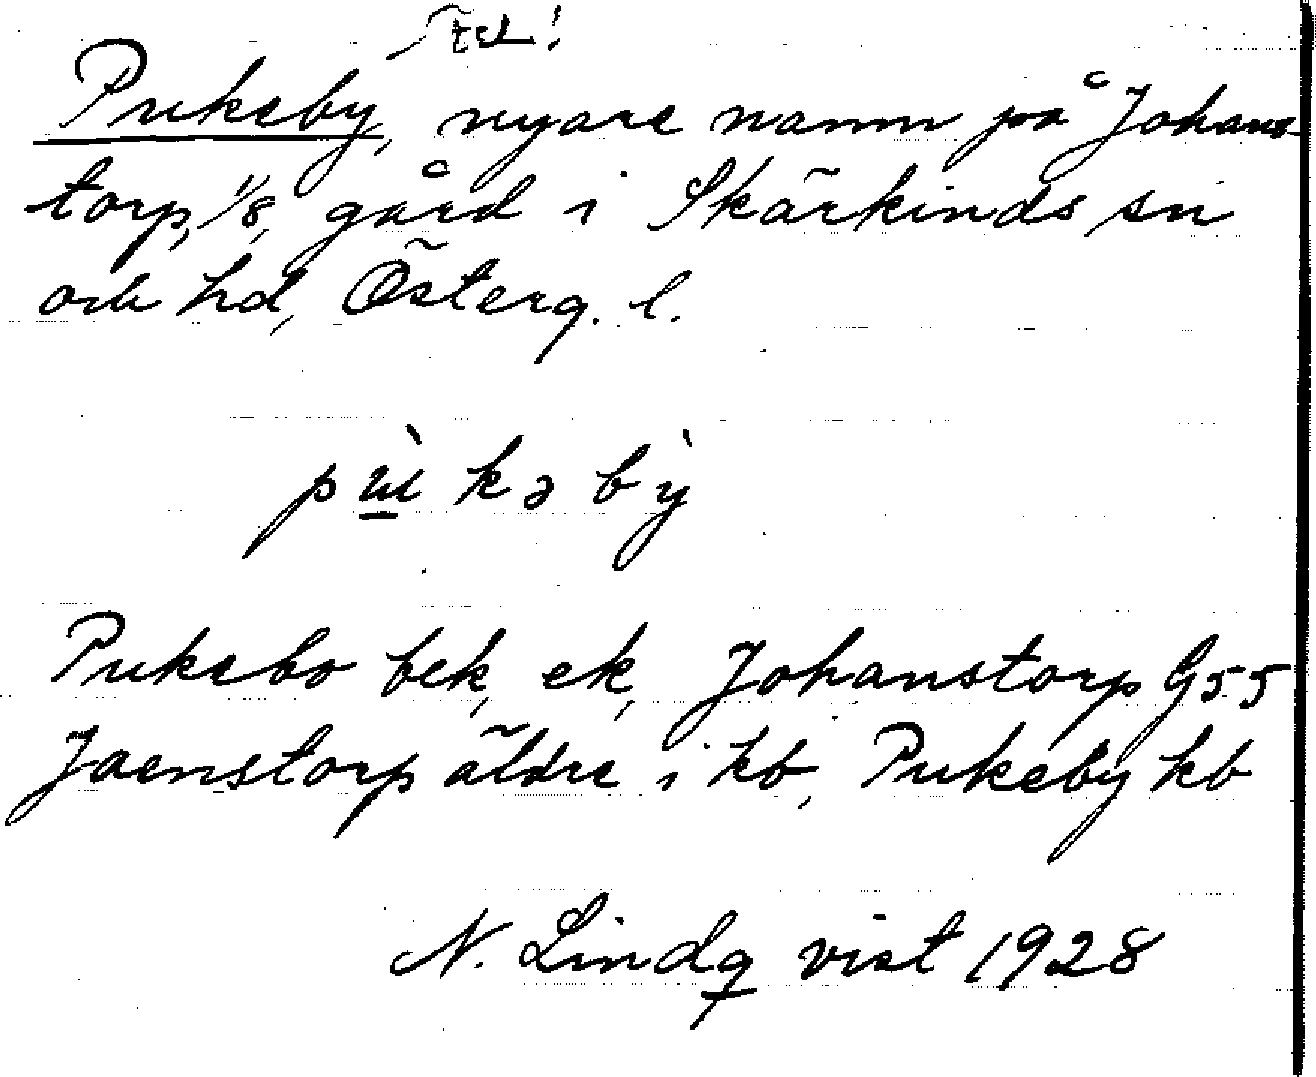 Pukeby, nyare namn på Johans-
torp, 1/8, gård i Skärkinds sn
och hd, Österg. l.
Pukebo bek, ek, Johanstorp G55
Joenstorp äldre i kb, Pukeby kb
N. Lindqvist 1928